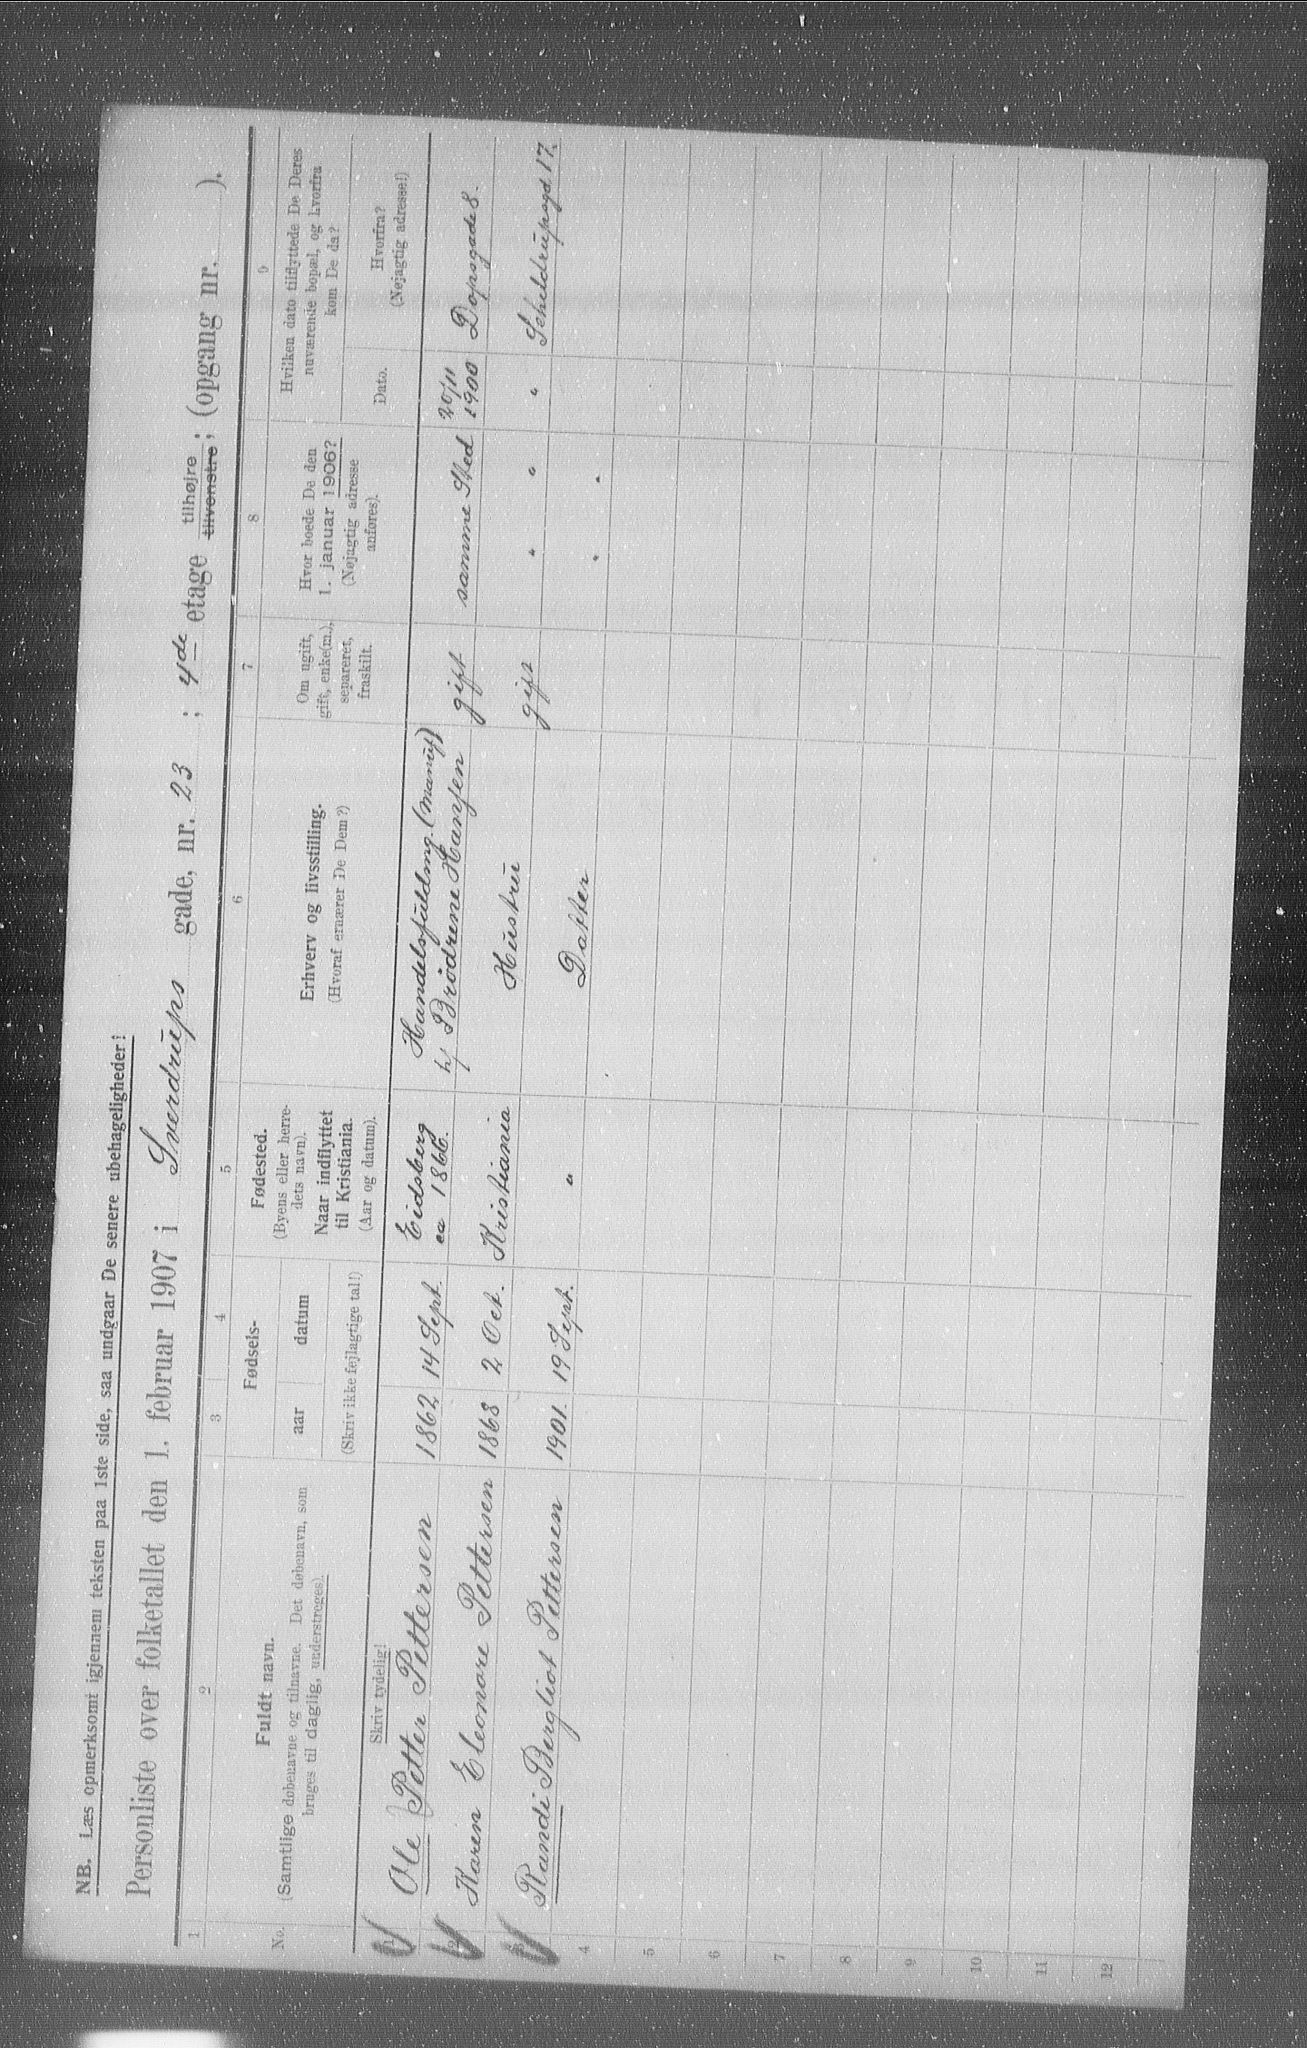 NB. Læs opmerksomt igjennem teksten paa 1ste side, saa undgaar De senere ubehageligheder!
Personliste over folketallet den 1. februar 1907 i Sverdrups gade, nr. 23 ; 4de etage tilhøjre tilvenstre ; (opgang nr. ).
1 2 3 4 5 6 7 8 9
No.
Fuldt navn.
(Samtlige døbenavne og tilnavne. Det døbenavn, som
bruges til daglig, understreges).
Skriv tydelig!
Fødsels-
aar datum
(Skriv ikke fejlagtige tal!)
Fødested.
(Byens eller herre-
dets navn).
Naar indflyttet
til Kristiania.
(Aar og datum).
Erhverv og livsstilling.
(Hvoraf ernærer De Dem?)
Om ugift,
gift, enke(m.),
separeret,
fraskilt.
Hvor boede De den
1. januar 1906?
(Nøjagtig adresse
anføres).
Hvilken dato tilflyttede De Deres
nuværende bopæl, og hvorfra
kom De da?
Dato.
Hvorfra?
(Nøjagtig adresse!)
Ole Petter Pettersen 1862 14 Sept. Eidsberg ca 1866. Handelsfuldmg. (manuf) h/ Brødrene Hansen gift samme Sted 20/11 1900 Dopsgade 8.
2 Karen Eleonore Pettersen 1868 2 Oct. Kristiania Hustru gift " " " Scheldrupsgd 17.
3 Randi Bergliot Pettersen 1901. 19 Sept. " Datter " "
4
5
6
7
8
9
10
11
12